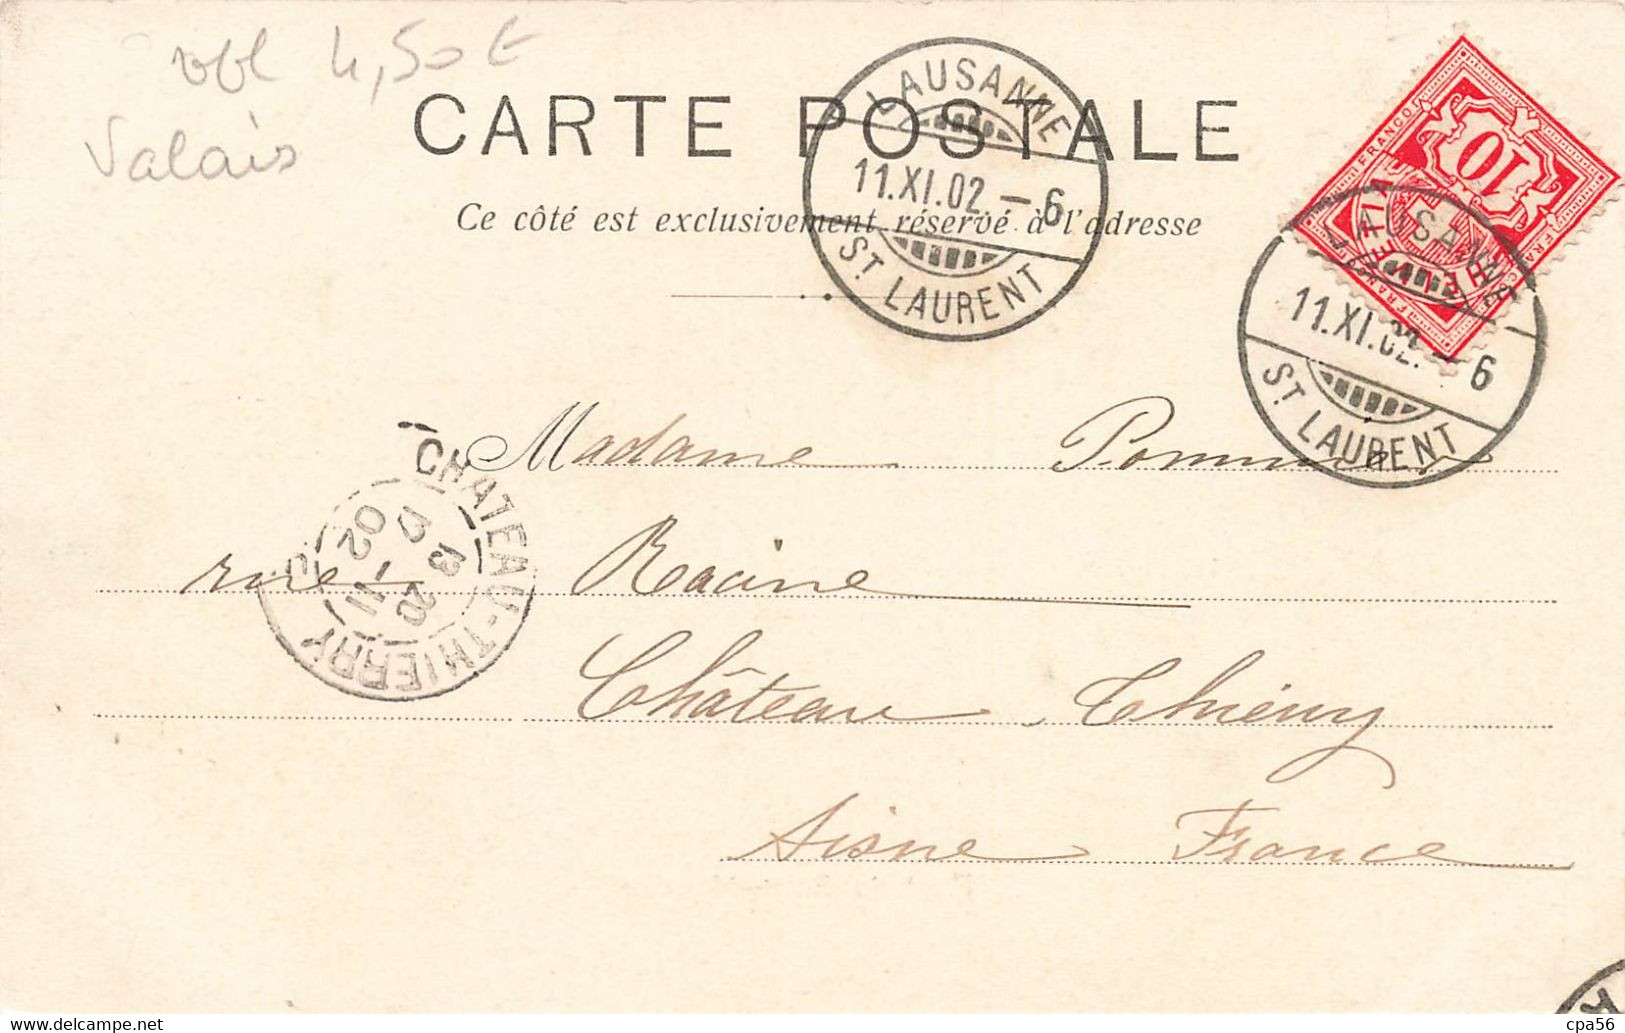 vbl 4,50 €
Valais
CARTE POSTALE
Ce côté est exclusivement réservé à l'adresse
LAUSANNE
11.XI.02.-6
ST. LAURENT
FRANCO
10
HELVETIA
FRANCO
FRANCO
LAUSANNE
11.XI.02.-6
ST. LAURENT
Madame
CHATEAU-THIERRY
13
02 -11
rue Racine
Château Thierry
Aisne France
cpa56